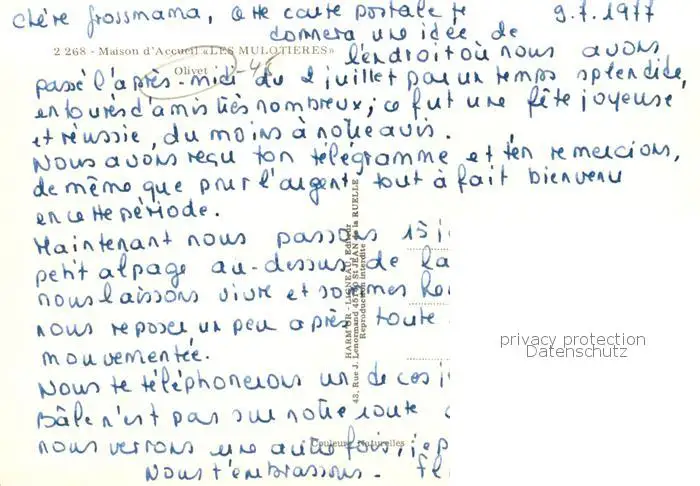 Chère Grossmama, cette carte postale te 9.7.1977
donnera une idée de
2 268 - Maison d'Accueil «LES MULOTIERES» l'endroit où nous avons
Olivet 1-45
passé l'après-midi du 2 juillet par un temps splendide,
entourés d'amis très nombreux; ce fut une fête joyeuse
et réussie, du moins à notre avis.
Nous avons reçu ton télégramme et t'en remercions,
de même que pour l'argent tout à fait bienvenu
en cette période.
Maintenant nous passons 15 j
petit alpage au-dessus de La
nous laissons vivre et sommes he
nous reposer un peu après toute
mouvementée.
Nous te téléphonerons un de ces j
Bâle n'est pas sur notre route
nous verrons une autre fois, j'esp
Nous t'embrassons.
HARMOR - LIGNEAU, Editeur
43, Rue J. Lenormand 45140 St JEAN de la RUELLE
Reproduction interdite
Couleurs Naturelles
privacy protection
Datenschutz